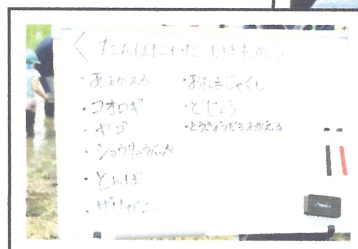 〈たんぼにいた いきもの〉
・あまがえる
・コオロギ
・ヤゴ
・ショウリョウバッタ
・とんぼ
・ザリガニ
・おたまじゃくし
・どじょう
・とうきょうだるまがえる